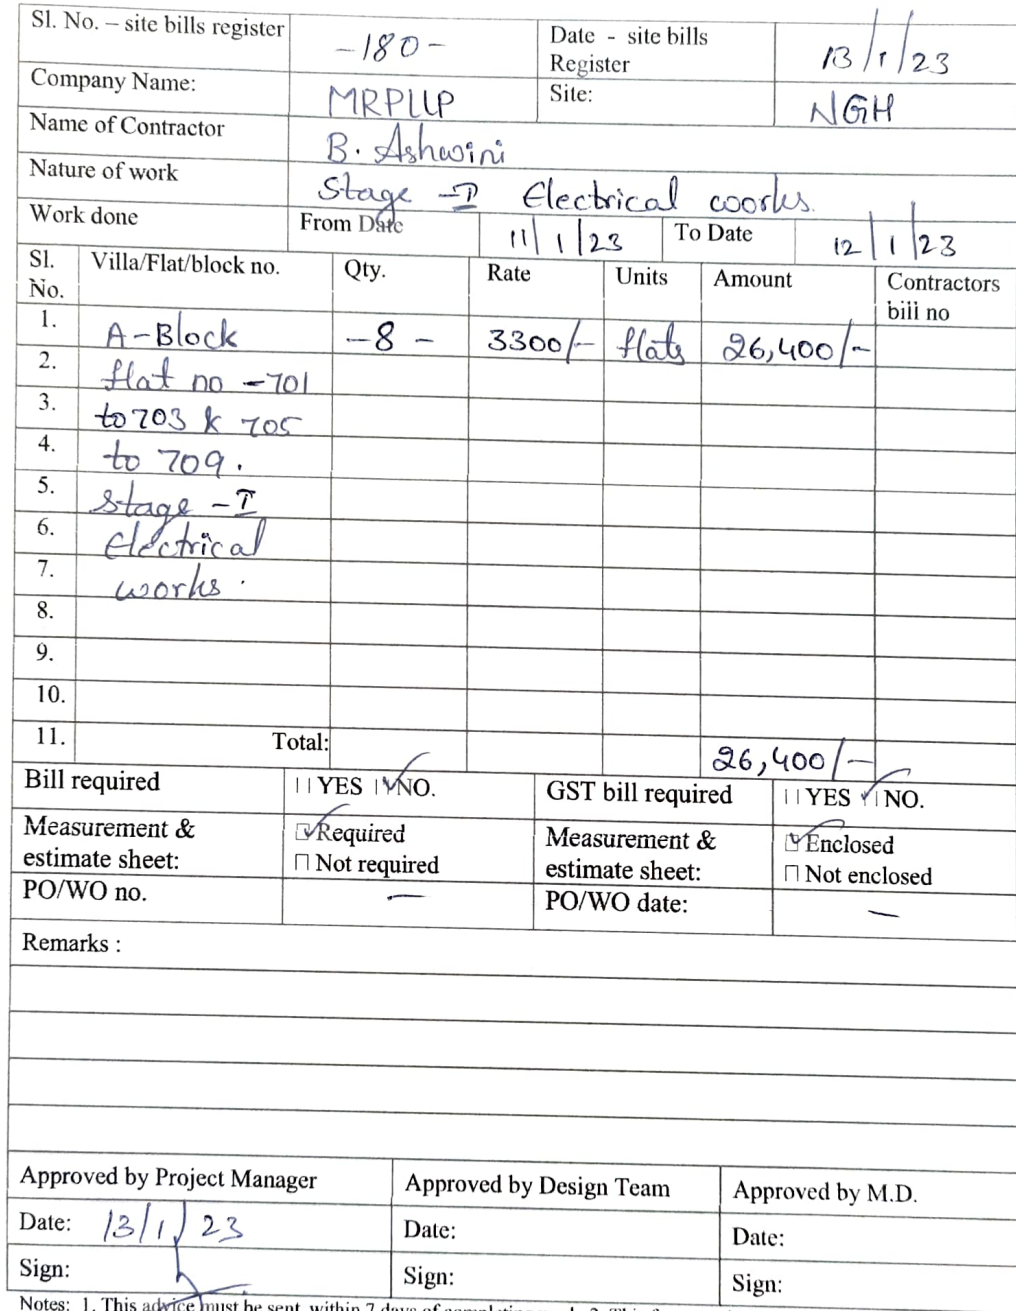 Sl. No. – site bills register -180- Date - site bills Register 13/1/23
Company Name: MRPLLP Site: NGH
Name of Contractor B. Ashwini
Nature of work Stage -I Electrical works.
Work done From Date 11/1/23 To Date 12/1/23
Sl. No. Villa/Flat/block no. Qty. Rate Units Amount Contractors bill no
1. A-Block -8- 3300/- flats 26,400/-
2. flat no -701
3. to 703 & 705
4. to 709.
5. Stage -I
6. Electrical
7. works.
8.
9.
10.
11. Total: 26,400/-
Bill required YES ✓NO. GST bill required YES ✓NO.
Measurement & estimate sheet: ☑Required Measurement & estimate sheet: ☑Enclosed
☐ Not required ☐ Not enclosed
PO/WO no. — PO/WO date: —
Remarks :
Approved by Project Manager Approved by Design Team Approved by M.D.
Date: 13/1/23 Date: Date:
Sign: Sign: Sign:
Notes: 1. This advice must be sent within 7 days of